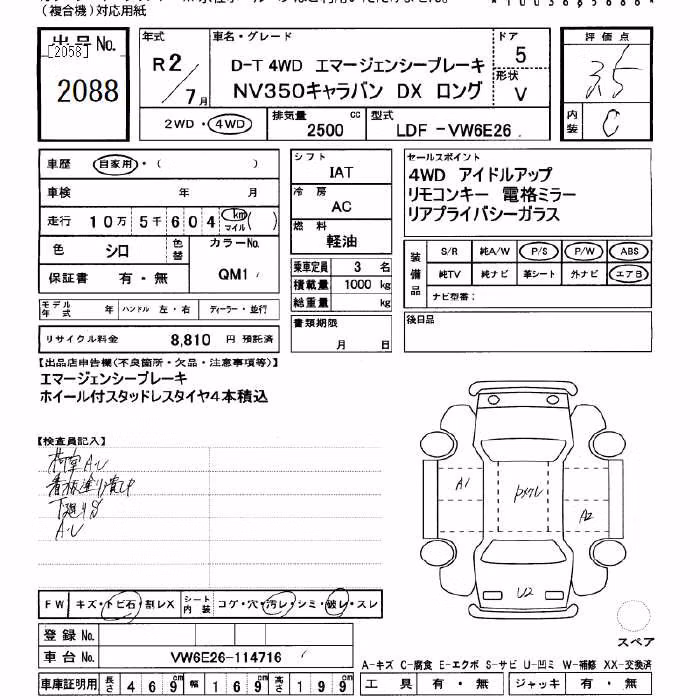 (複合機)対応用紙
出品No. [2058] 2088
年式 R2/7月
車名・グレード
D-T 4WD エマージェンシーブレーキ
NV350キャラバン DX ロング
ドア 5
形状 V
2WD・4WD
排気量 2500 cc
型式 LDF -VW6E26
評価点 3.5
内装 C
車歴 自家用・( )
車検 年 月
走行 10万5千604 km マイル( )
色 シロ 色替 カラーNo. QM1
保証書 有・無
モデル年式 年 ハンドル 左・右 ディーラー・並行
リサイクル料金 8,810 円 預託済
シフト IAT
冷房 AC
燃料 軽油
乗車定員 3 名
積載量 1000 kg
総重量 kg
書類期限 月 日
セールスポイント
4WD アイドルアップ
リモコンキー 電格ミラー
リアプライバシーガラス
装備品 S/R 純A/W P/S P/W ABS
純TV 純ナビ 革シート 外ナビ エアB
ナビ型番:
後日品
【出品店申告欄(不良箇所・欠品・注意事項等)】
エマージェンシーブレーキ
ホイール付スタッドレスタイヤ4本積込
【検査員記入】
A・U
A・U
A1
A2
U2
スペア
FW キズ・トビ石・割レX シート内装 コゲ・穴・汚レ・シミ・破レ・スレ
登録No.
車台No. VW6E26-114716
A-キズ C-腐食 E-エクボ S-サビ U-凹ミ W-補修 XX-交換済
車庫証明用 長さ 469cm 幅 169cm 高さ 199cm
工具 有・無 ジャッキ 有・無